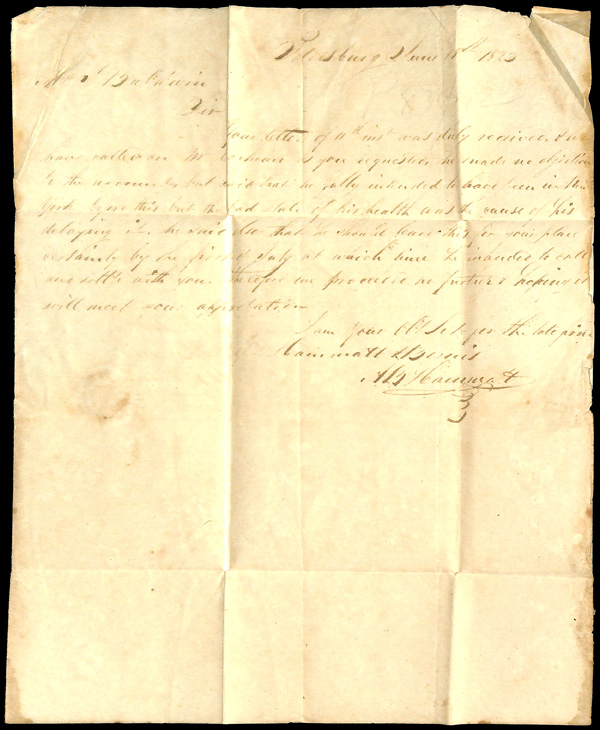 June 18th 1823
Mr J Baldwin
Sir
Your letter of 11th inst was duly received & we
have called on Mr as you requested, he made no objection
to the accounts but said that he really intended to have been in New
York before this but the bad state of his health was the cause of his
delaying it. he said also that he should leave this for your place
certainly by the first of July at which time he intends to call
and settle with you. Therefore we proceeded no further hoping it
will meet your approbation
I am your Obt Sert for the late firm
Hammatt &